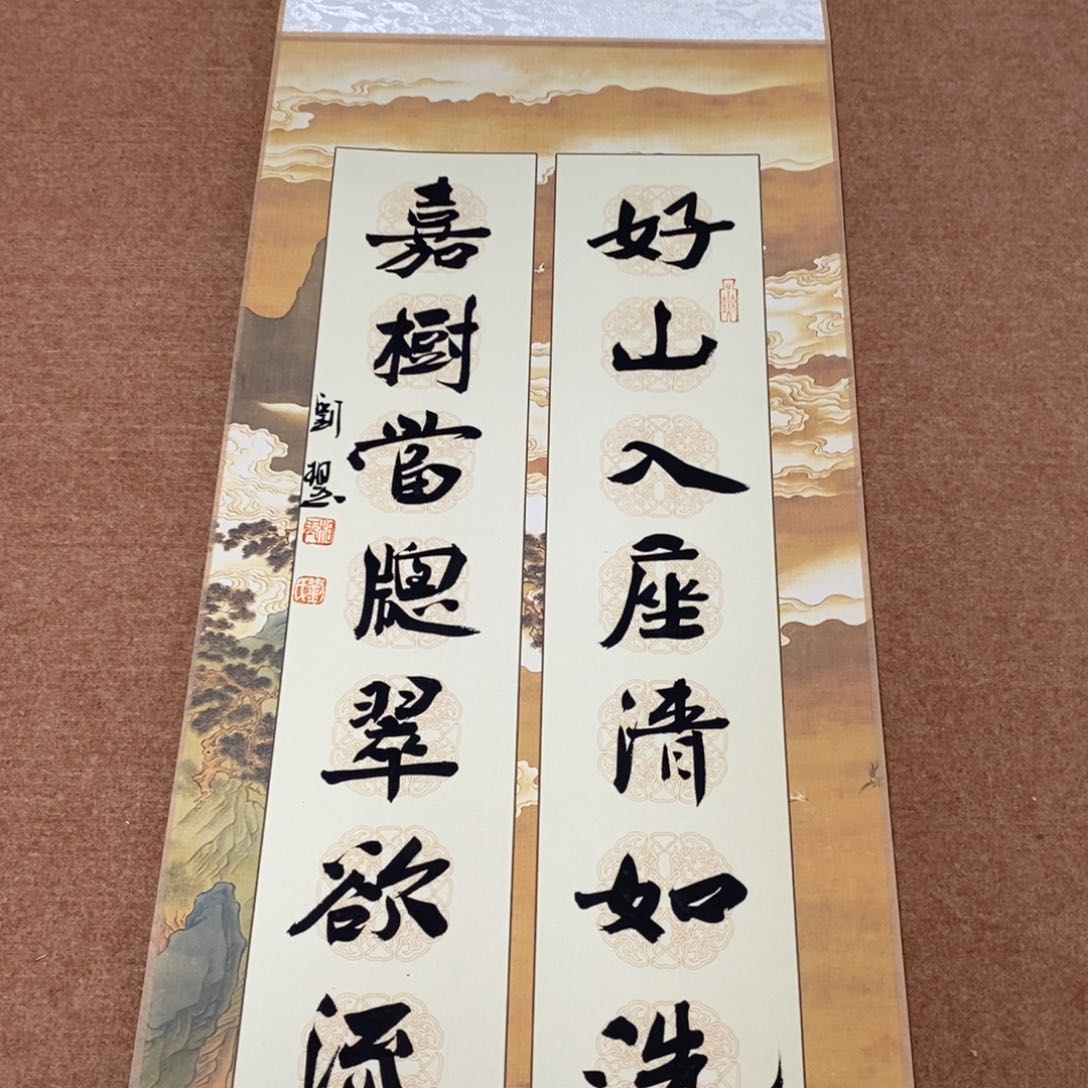 好山入座清如洗
嘉樹當牕翠欲流
劉